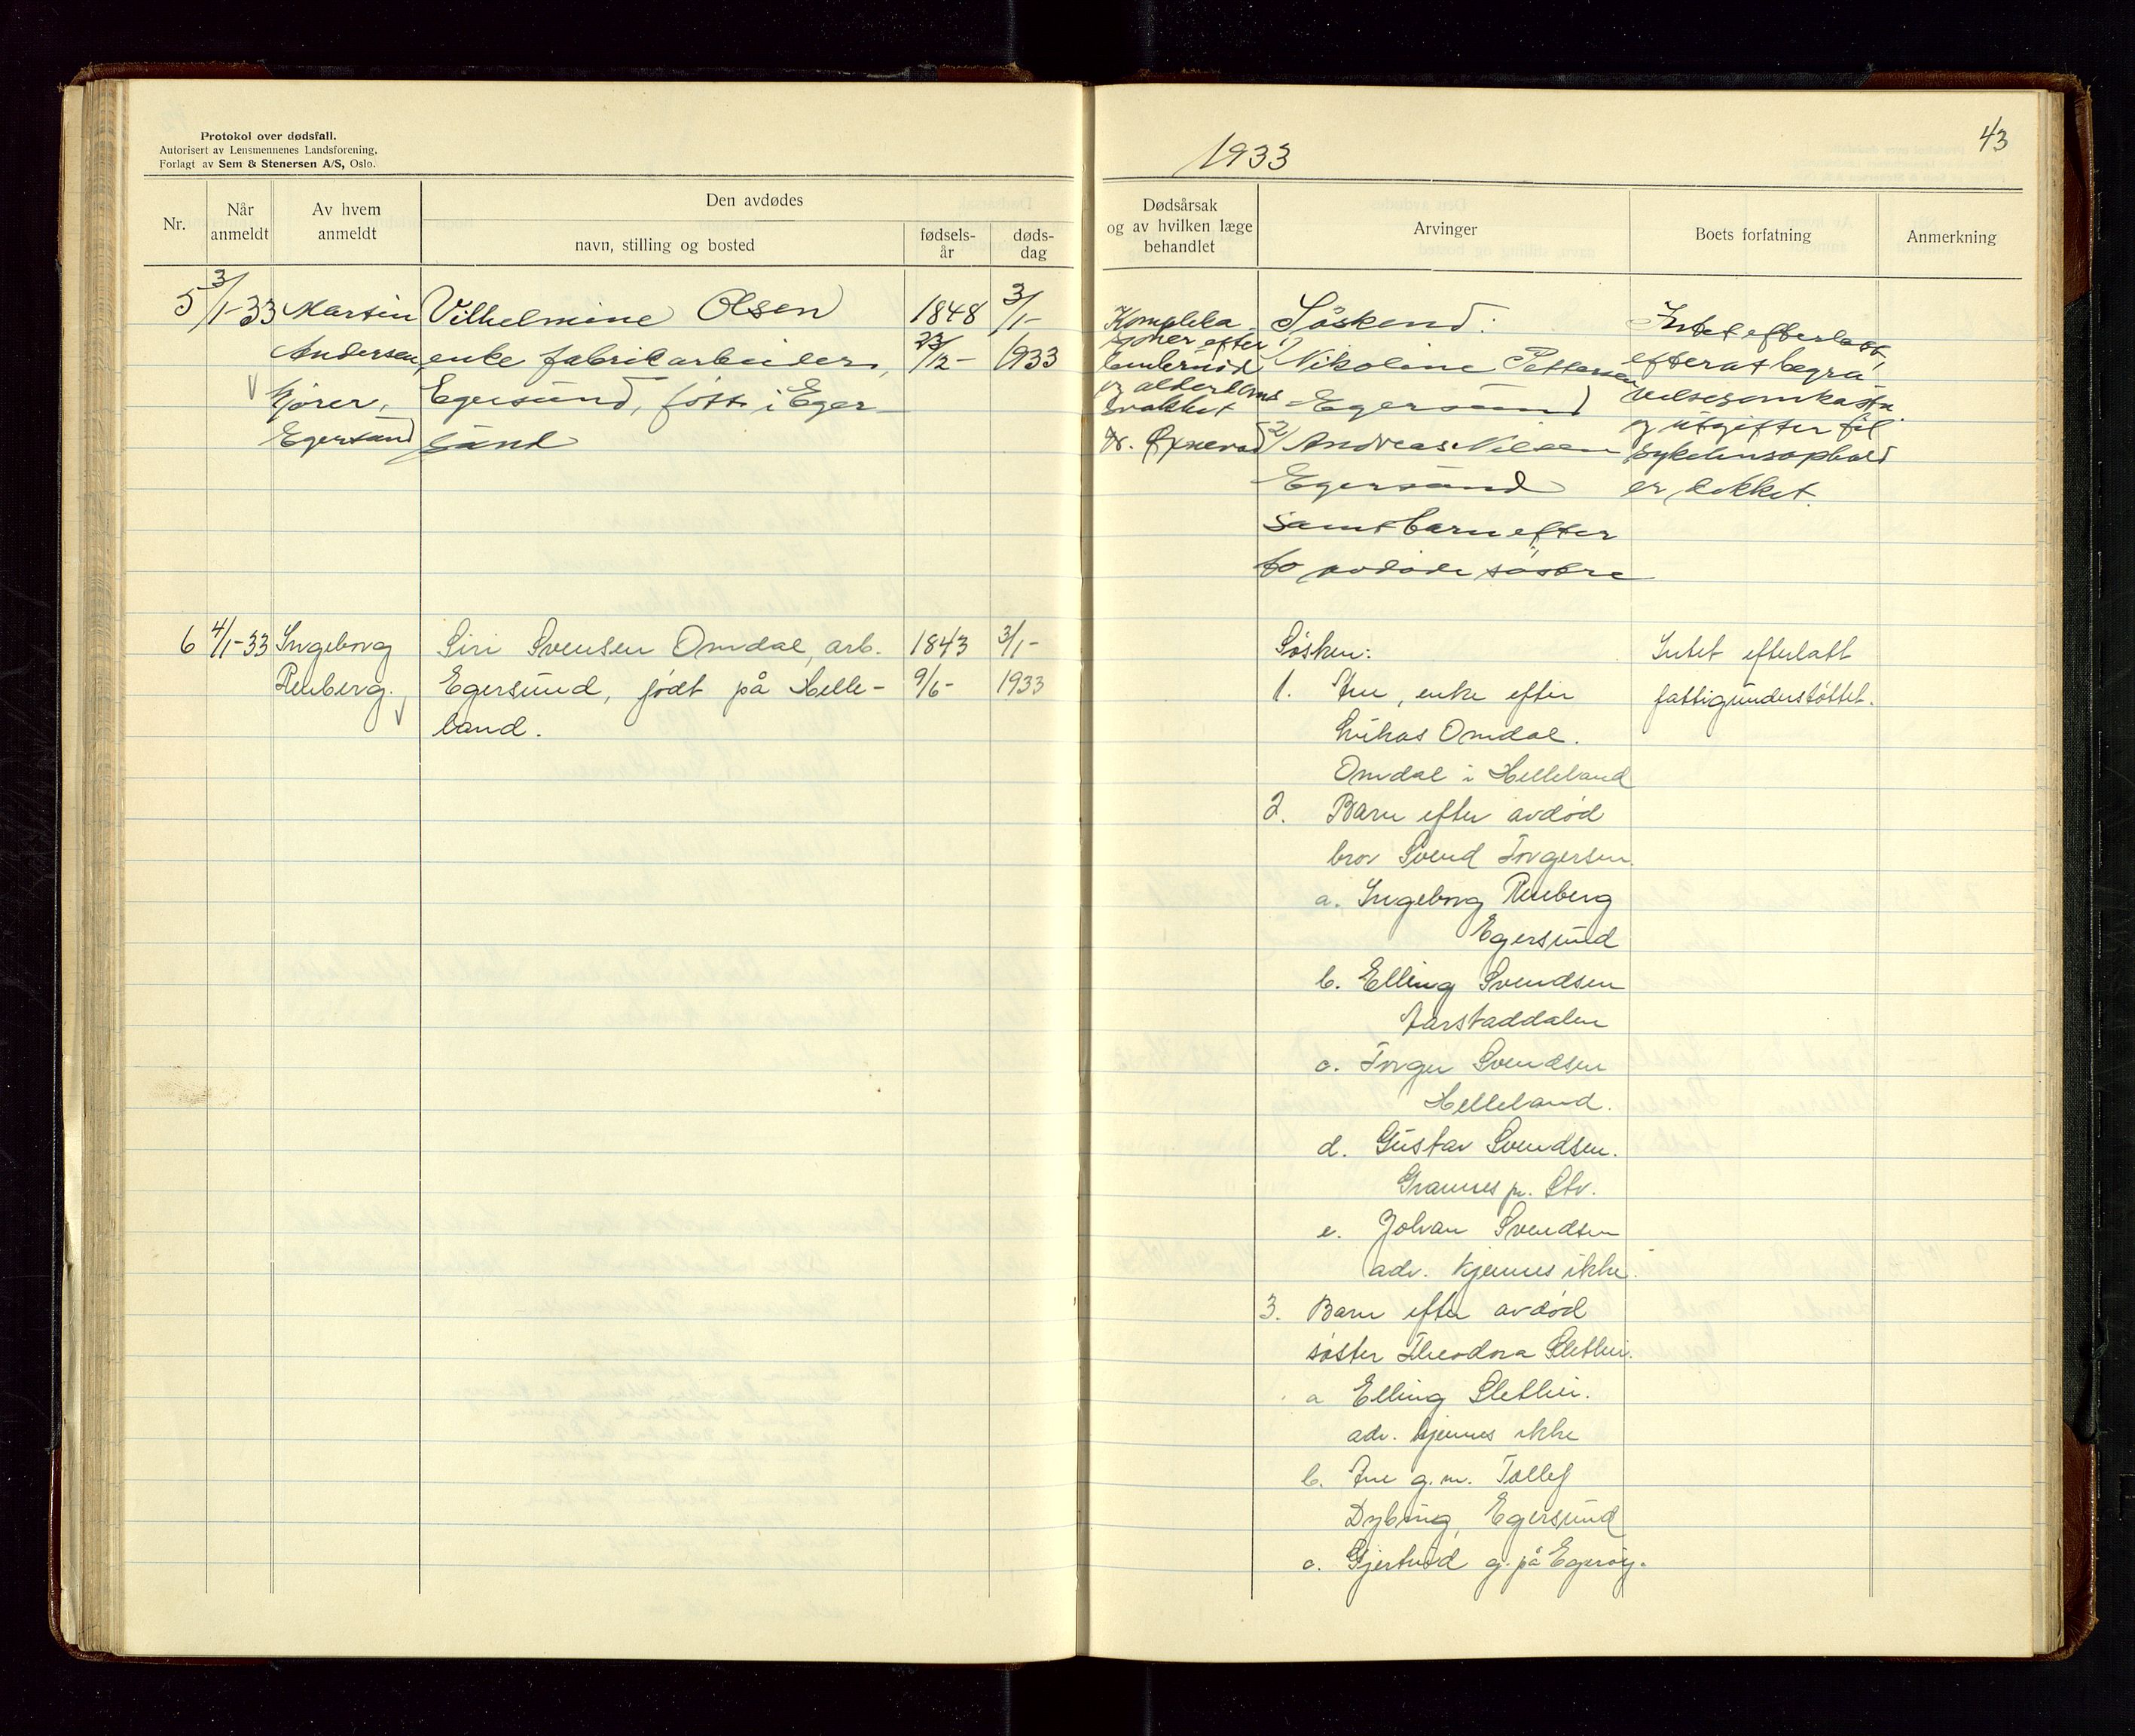 Protokol over dødsfall.
Autorisert av Lensmennenes Landsforening,
Forlagt av Sem & Stenersen A/S, Oslo.
1933
43
Nr.
Når anmeldt
Av hvem anmeldt
Den avdødes
navn, stilling og bosted
fødsels-år
døds-dag
Dødsårsak og av hvilken læge behandlet
Arvinger
Boets forfatning
Anmerkning
5
3/1-33
Martin
Andersen,
kjører,
Egersund
Vilhelmine Olsen
enke fabrikarbeider,
Egersund, født i Eger-
sund
1848
23/12-
3/1-
1933
Komplika-
sjoner efter
benbrudd
og alderdoms
svakhet
Dr. Øxnevad
Søskend:
1/ Nikoline Pettersen
Egersund
2/ Andreas Nilsen
Egersund
samt barn efter
to avdøde søstre
Intet efterlatt,
efterat begra-
velsesomkostn.
og utgifter til
sykehusophold
er dekket.
6
4/1-33
Ingeborg
Reuberg.
Siri Svensen Omdal, arb.
Egersund, født på Helle-
land.
1843
9/6-
3/1-
1933
Søsken:
1. Ane, enke efter
Lukas Omdal.
Omdal i Helleland
2. Barn efter avdød
bror Svend Torgersen.
a. Ingeborg Reuberg
Egersund
b. Elling Svendsen
Aarstaddalen
c. Torger Svendsen
Helleland.
d. Gustav Svendsen.
Grannes pr. Stv.
e. Johan Svendsen
adr. kjennes ikke.
3. Barn efter avdød
søster Theodora Slettei.
a Elling Slettei.
adr. kjennes ikke
b. Ane g.m. Tollef
Dybing, Egersund
c. Gjertrud g. på Egerøy.
Intet efterlatt
fattigunderstøttet.